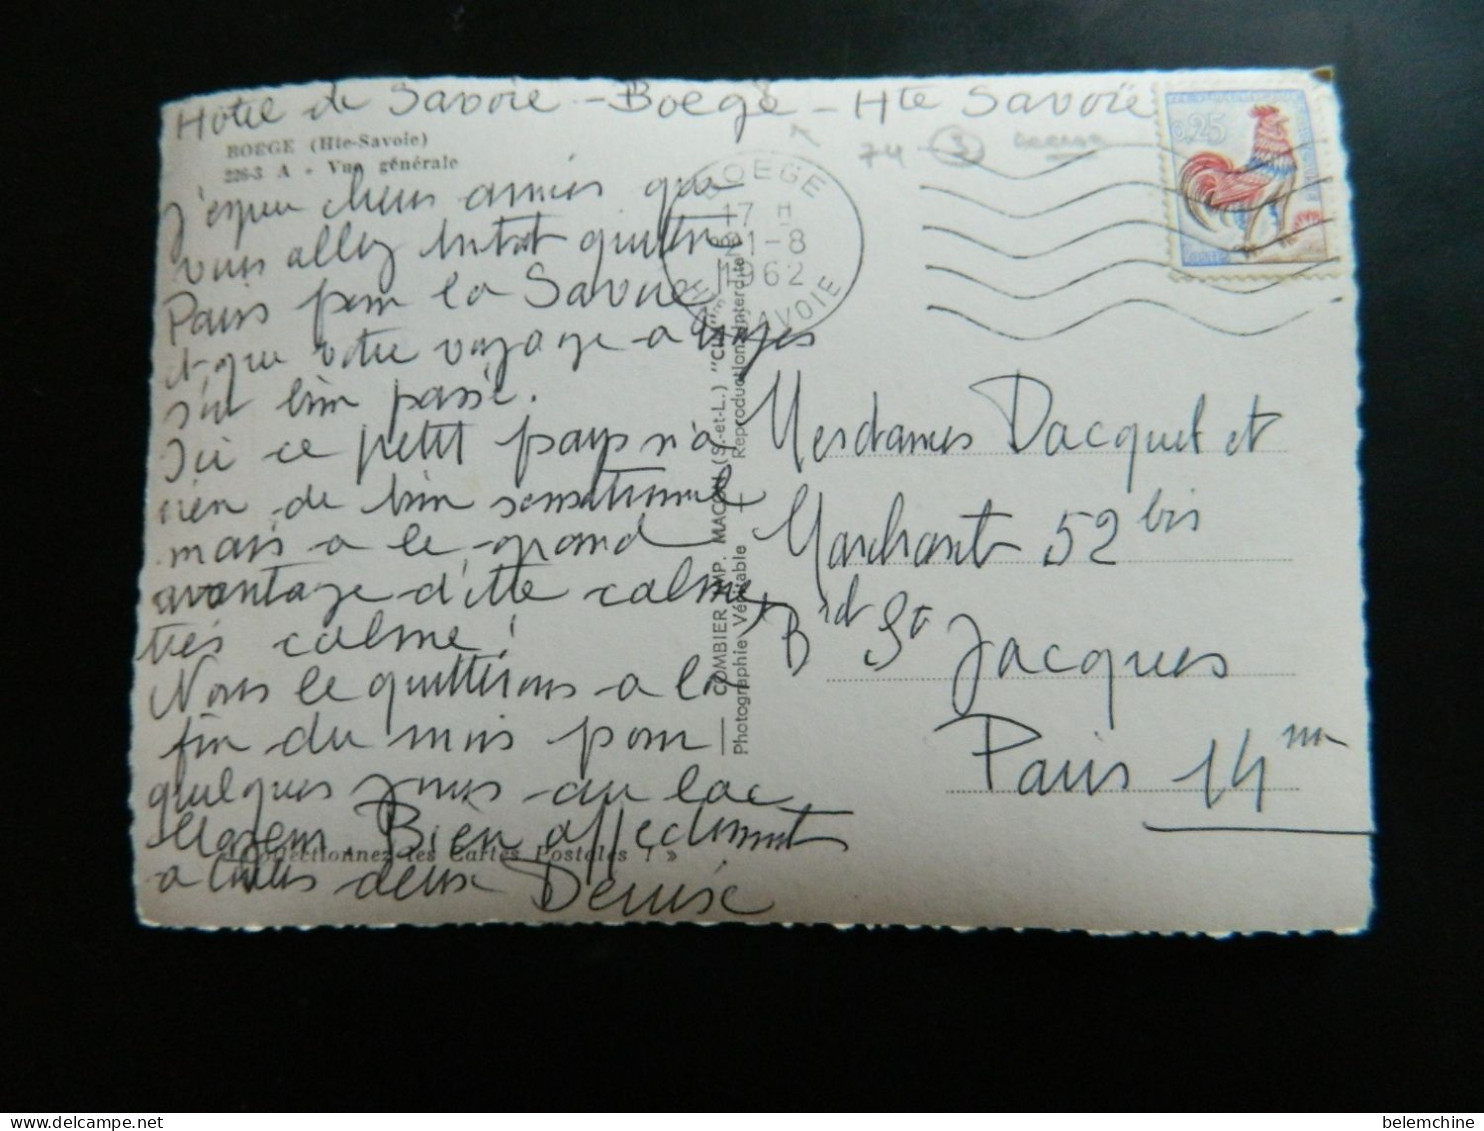 Hôtel de Savoie - Boege - Hte Savoie
BOEGE (Hte-Savoie)
226-3 A - Vue générale
J'espère chères amies que
vous allez bientôt quitter
Paris pour la Savoie
et que votre voyage
soit bien passé.
Ici ce petit pays n'a
rien de bien sensationnel
mais a le grand
avantage d'être calme,
très calme !
Nous le quitterons à la
fin du mois pour
quelques jours au lac
Bien affectueusement
à toutes deux Denise
« Collectionnez les Cartes Postales ! »
COMBIER IMP. MACON (S.-et-L.) "CIM"
Photographie Véritable - Reproduction Interdite
BOEGE
17 H
21-8
1962
HTE SAVOIE
74
0,25
Mesdames Dacquet et
Marchant 52 bis
Brd St Jacques
Paris 14me
belemchine